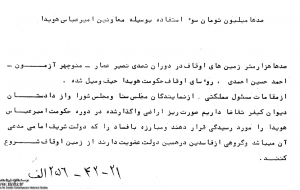 صدها میلیون تومان سوء استفاده بوسیله معاونین امیرعباس هویدا
صدها هزار متر زمین های اوقاف در دوران تصدی نصیر عصار - منوچهر آزمون -
احمد حسین احمدی ، روسای اوقاف حکومت هویدا حیف ومیل شده .
از مقامات مسئول مملکتی . از نمایندگان مجلس سنا ومجلس شورا واز دادستان
دیوان کیفر تقاضا داریم صورت ریز اراضی واگذارشده در دوره حکومت امیرعباس
هویدا را مورد رسیدگی قرار دهند ومبارزه بافساد را که دولت شریف امامی مدعی
آن میباشد وگروهی از فاسدین درهمین دولت عضویت دارند از زمین اوقاف شروع
کنند .
۲۱-۴۲-۲۵۶ الف